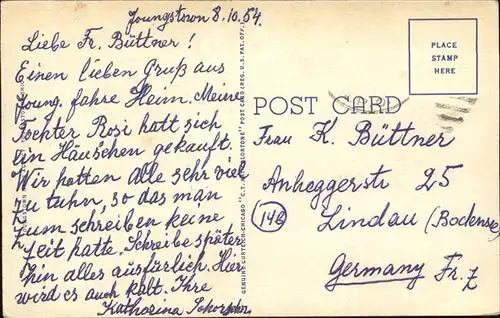 Joungstown 8.10.54.
Liebe Fr. Büttner!
Einen lieben Gruß aus
Joung. fahre Heim. Meine
Tochter Rosi hatt sich
ein Häuschen gekauft.
Wir hatten Alle sehr viel
zu tuhn, so das man
zum schreiben keine
Zeit hatte. Schreibe später
hin alles ausfürlich. Hier
wird es auch kalt. Ihre
Katharina
GENUINE CURTEICH-CHICAGO "C.T. ART-COLORTONE" POST CARD (REG. U.S. PAT. OFF.)
PLACE
STAMP
HERE
POST CARD
Frau K. Büttner
Anheggerstr 25
(14b) Lindau (Bodensee
Germany Fr. Z